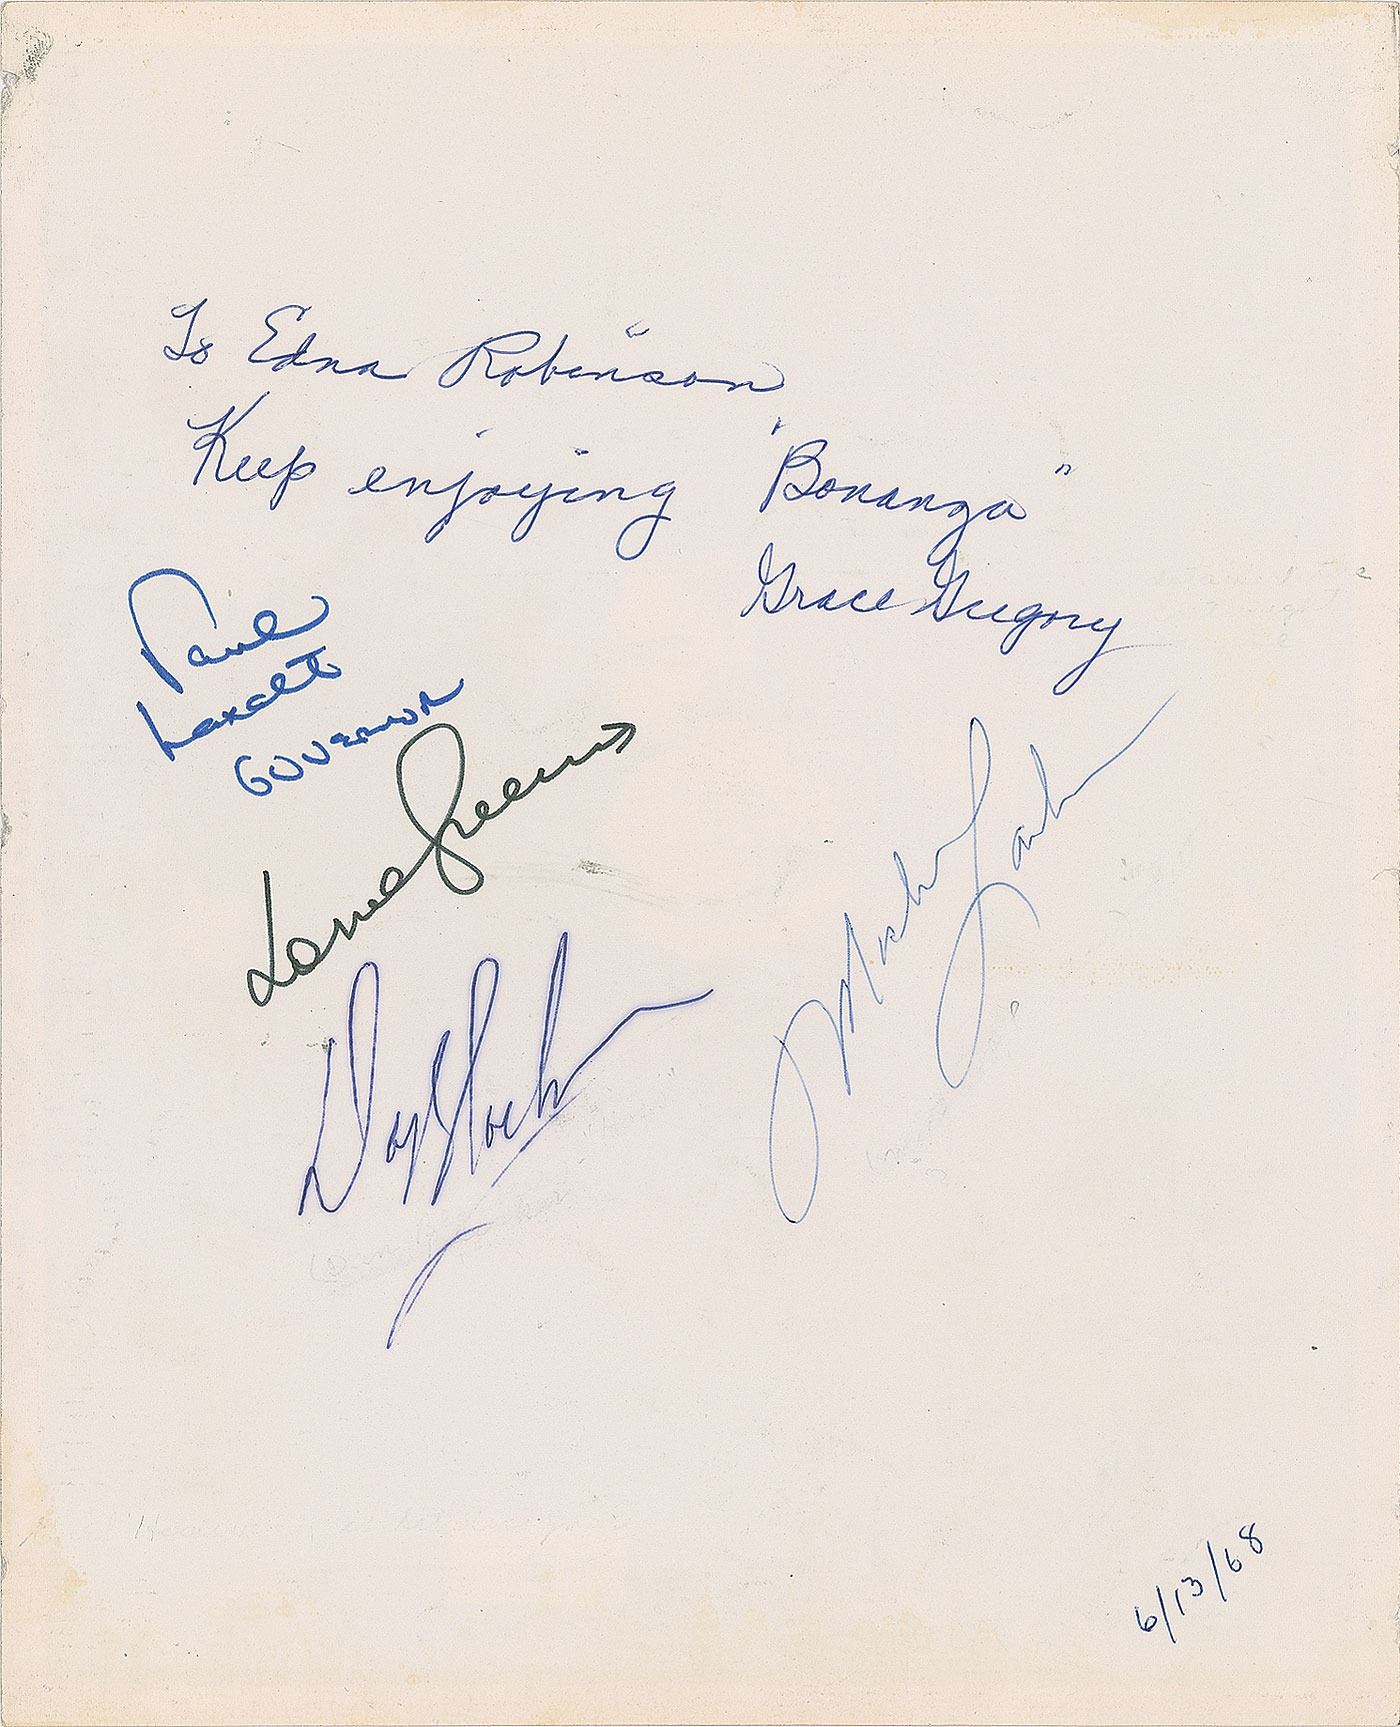 To Edna Robinson
Keep enjoying "Bonanza"
Grace Gregory
Paul
Laxalt
GOVERNOR
Lorne Greene
Michael Landon
Dan Blocker
6/13/68